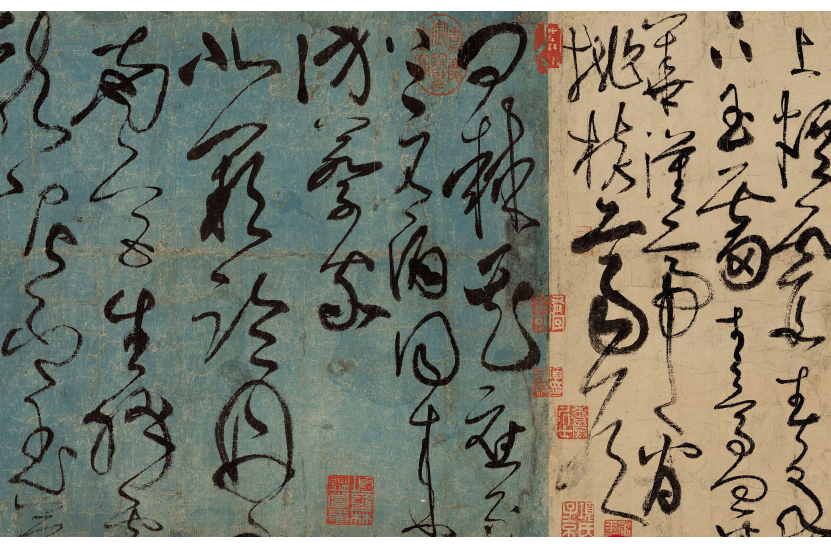 上煙霞春泉
下玉霤青鳥向金
華漢帝看
桃核齊侯
問棘花應逐
上元酒同來
訪蔡家
北闕臨丹
南宮生絳雲
龍泥印玉